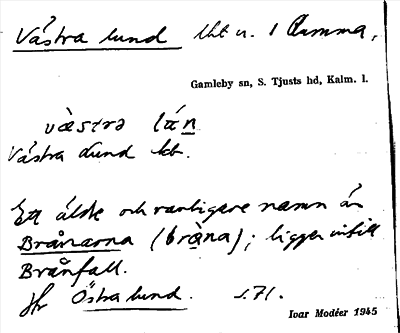 Västra lund lht u. 1 Lumma,
Gamleby sn, S. Tjusts hd, Kalm. l.
västrə
Västra Lund kt.
Ett äldre och vanligare namn än
Brånarna (bràna); ligger intill
Brånfall.
Jfr Östra lund. s.71.
Ivar Modéer 1945